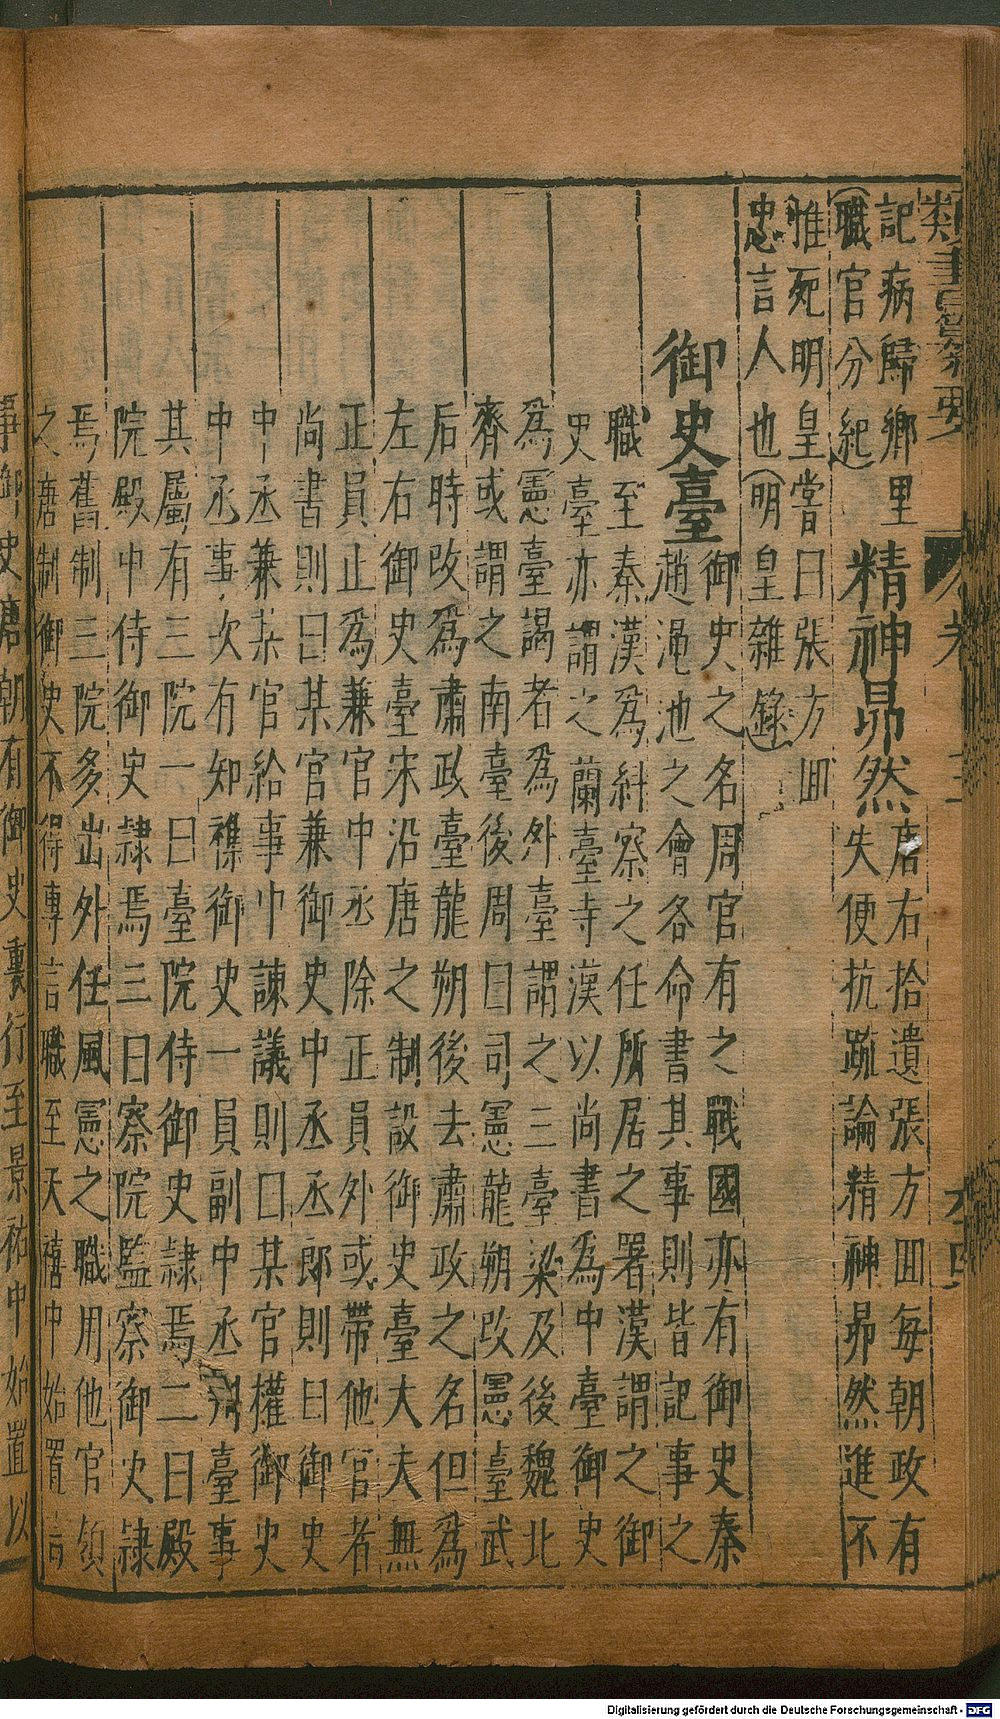 記病歸鄉里
(職官分紀)
精神昴然
唐右拾遺張方回每朝政有
失便抗疏論精神昴然進不
惟死明皇嘗曰張方回
忠言人也(明皇雜錄)
御史臺
御史之名周官有之戰國亦有御史秦
趙澠池之會各命書其事則皆記事之
職至秦漢為糾察之任所居之署漢謂之御
史臺亦謂之蘭臺寺漢以尚書為中臺御史
為憲臺謁者為外臺謂之三臺梁及後魏北
齊或謂之南臺後周曰司憲龍朔改憲臺武
后時改為肅政臺龍朔後去肅政之名但為
左右御史臺宋沿唐之制設御史臺大夫無
正員止為兼官中丞除正員外或帶他官者
尚書則曰某官兼御史中丞丞郎則曰御史
中丞兼某官給事中諫議則曰某官權御史
中丞事次有知襍御史一員副中丞判臺事
其屬有三院一曰臺院侍御史隷焉二曰殿
院殿中侍御史隷焉三曰察院監察御史隷
焉舊制三院多出外任風憲之職用他官領
之唐制御史不得專言職至天禧中始置言
事御史唐朝有御史裏行至景祐中始置以
Digitalisierung gefördert durch die Deutsche Forschungsgemeinschaft - DFG